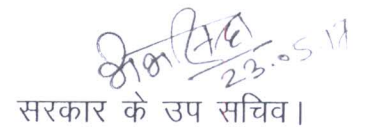 23.05.17
सरकार के उप सचिव।